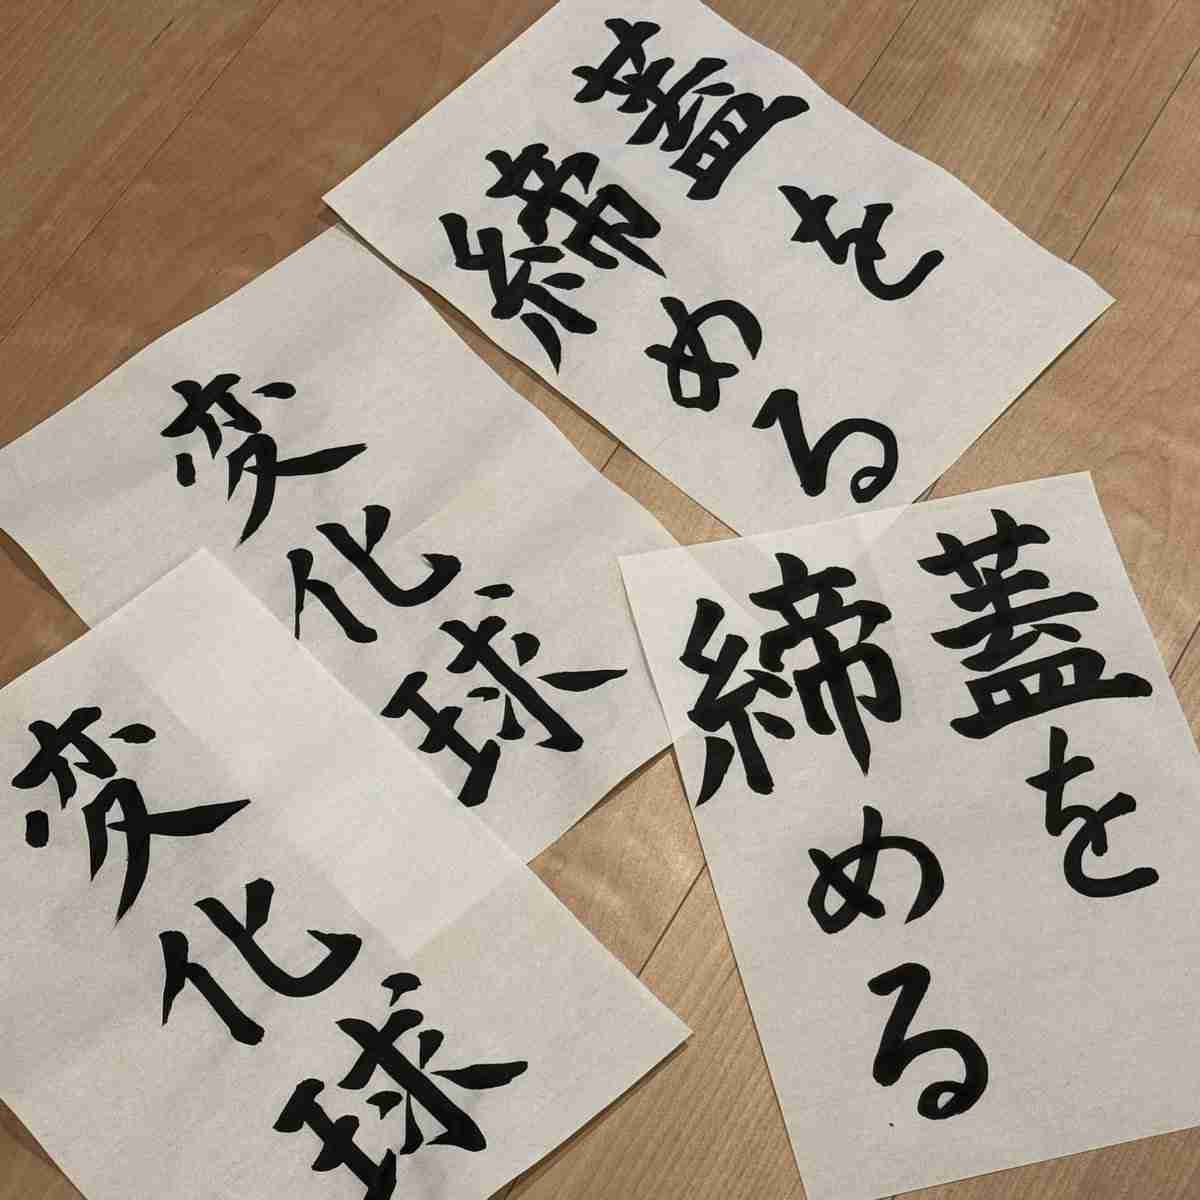 蓋を
締める
変化球
蓋を
締める
変化球